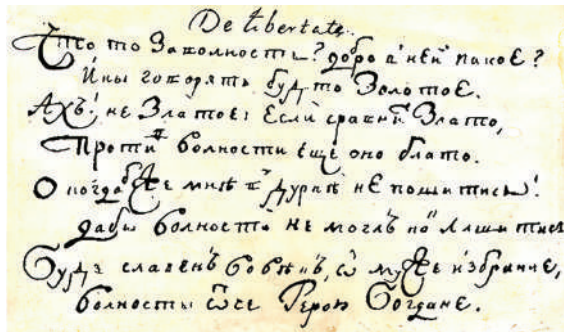 De libertate.
Что то За волность? добро в ней какое?
Ины говорять будто Золотое.
Ахъ! не Златое: Если сравнит Злато,
Против волности еще оно блато.
О когда бы же мнѣ в дурнѣ не пошитись!
дабы волности не моглъ лишитись
Будь славенъ вовѣкъ, ѡ муже избранне,
волности ѿче Герою Богдане.